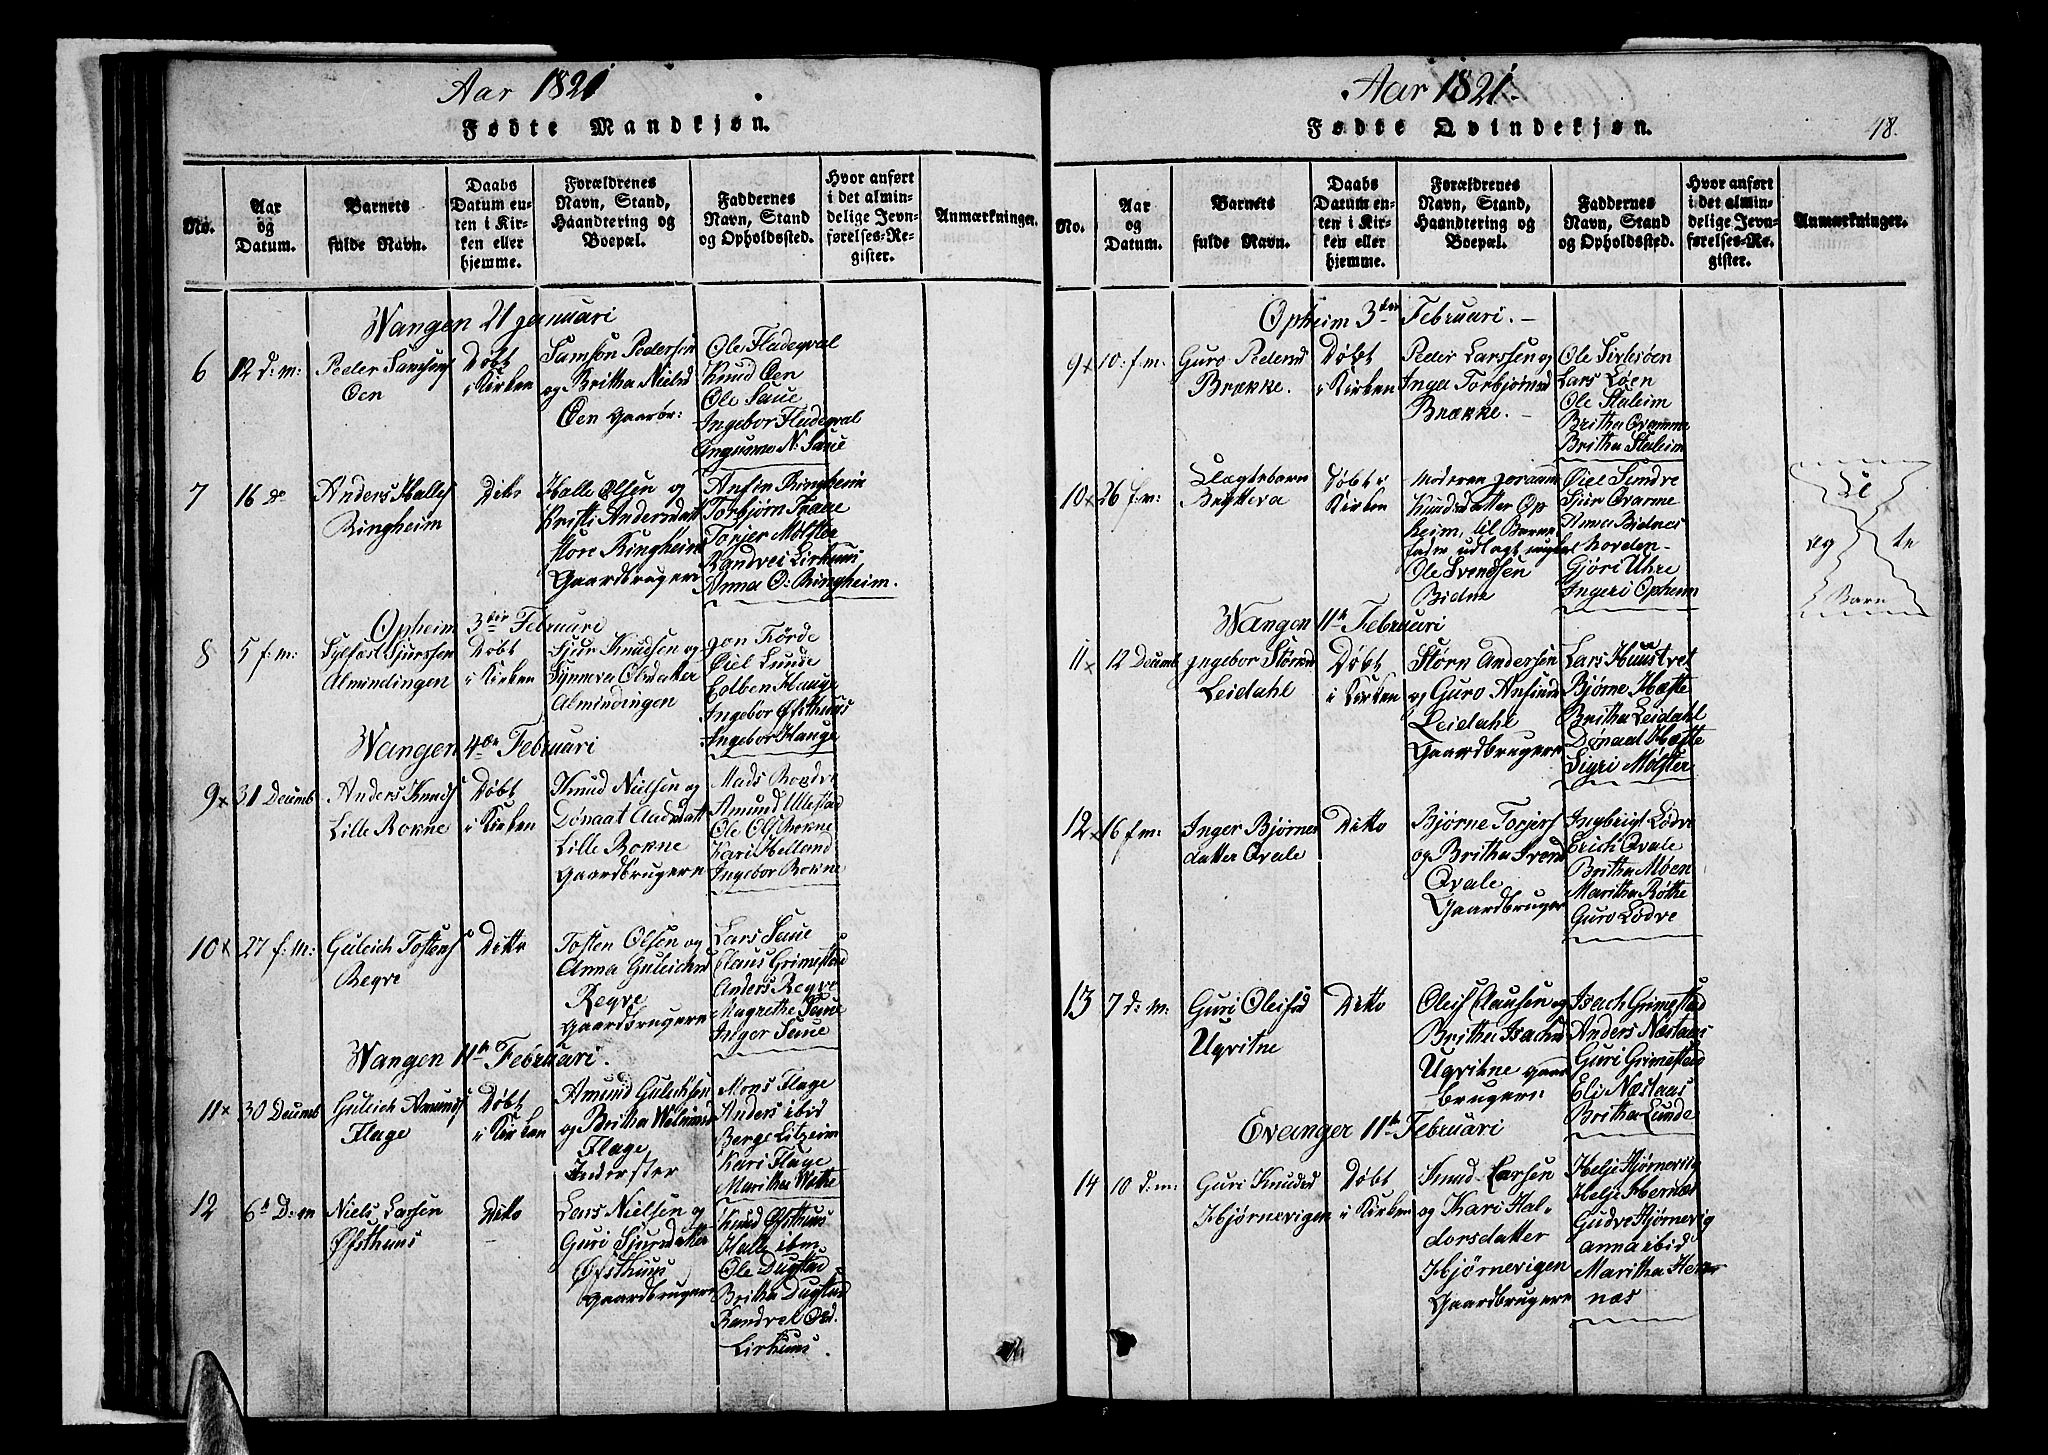 Aar 1821
Fødte Mandkjøn.
No.
Aar og Datum.
Barnets fulde Navn.
Daabs Datum enten i Kirken eller hjemme.
Forældrenes Navn, Stand, Haandtering og Boepæl.
Faddernes Navn, Stand og Opholdssted.
Hvor anført i det almindelige Jevnførelses-Register.
Anmærkninger.
Wangen 21 januari
6 12 d: m: Peder Samsens Øen
Døbt i Kirken
Samson Pedersen
og Britha Nielsd
Øen Gaarbr:
Ole Fladeqval
Knud Øen
Ole Saue
Ingebor Fladeqval
N: Saue
7 16 do Anders Halles Ringheim
Dito
Halle Olsen og
Kristi Andersdatt
store Ringheim
Gaardbrugere
Anfin Ringheim
Torbjørn Træe
Torjer Mølster
Randvei Lirhuus
Anna O: Ringheim.
Opheim 3die Februari
8 5 f: m: Sylfest Sjurssen Almindingen
Døbt i Kirken
Sjur Knudsen og
Synneva Olsdatter
Almindingen
jon Førde
Øiel Lunde
Colben Hauge
Ingebor Østhuus
Ingebor Hauge
Wangen 4de Februari
9 x 31 Decemb Anders Knuds Lille Rokne
Døbt i Kirken
Knud Nielsen og
Dønaat Andersdatt
Lille Rokne
Gaardbrugere
Mads Rondve
Amund Ullestad
Ole Ols Rokne
Kari Helland
Ingebor Rokne
10 x 27 f: m: Guleich Tostens Reqve
Ditto
Tosten Olsen og
Anna Guleichsd
Reqve
Gaardbrugere
Lars Saue
Claus Grimestad
Anders Reqve
Magrethe Saue
Inger Saue
Wangen 11te Februari.
11 x 30 Decemb Guleich Amunds Flage
Døbt i Kirken
Amund Guleichsen
og Britha
Flage
Inderster
Mons Flage
Anders ibid
Berge Litzheim
Kari Flage
Maritha Wethe
12 6te D: m Niels Larsen Øfsthuus
Ditto
Lars Nielsen og
Guri Sjursdatter
Øfsthuus
Gaardbrugere
Knud Øfsthuus
Halle ibm
Ole Dugstad
Britha Dugstad
Randvei Ord.
Lirhuus.
Aar 1821.
Fødte Qvindekjøn.
18.
No.
Aar og Datum.
Barnets fulde Navn.
Daabs Datum enten i Kirken eller hjemme.
Forældrenes Navn, Stand, Haandtering og Boepæl.
Faddernes Navn, Stand og Opholdssted.
Hvor anført i det almindelige Jevnførelses-Register.
Anmærkninger.
Opheim 3die Februari.
9 x 10 f. m: Guro Pedersd Brække.
Døbt i Kirken
Peder Larssen og
Inger Torbjørnsd
Brække.
Ole Sirlesøen
Lars Løen
Ole Staleim
Britha Qvamme
Britha Staleim
10 x 26 f: m: Uægtebarn Brytteva
Døbt i Kirken
Moderen joraand
Knudsdatter Op
heim, til Barne
fader udlagt ungkal
Ole Svendsen
Bidne
Øiel Sundre
Sjur Qvarme
Anna Bidnes
Norden-
Gjøri Uhre
Ingeri Opheim
Ue
æg te
Barn
Wangen 11te Februari
11 x 12 Decemb Ingebor Størksd Leidahl
Døbt i Kirken
Størk Andersen
og Guro Anfinsd
Leidahl
Gaardbrugere
Lars Huustvet
Bjørne Hæfte
Britha Leidahl
Dønaat Hæfte
Sigri Mølster
12 x 16 f m: Inger Bjørnes datter Qvale
Ditto
Bjørne Torjers
og Britha Svend
Qvale
Gaardbruger
Ingbrigt Lødve
Erich Qvale
Britha Møen
Maritha Røthe
Guro Lødve
13 7 d: m: Guri Oleifsd Uqvitne
Ditto
Oleif Clausen og
Britha Isachsd
Uqvitne gaar
brugere
Isach Grimestad
Anders Næstaas
Guri Grimestad
Eli Næstaas
Britha Lunde
Evanger 11te Februari
14 10 d: m: Guri Knudsd Hjørnevigen
Døbt i Kirken
Knud Larsen
og Kari Hal-
dorsdatter
Hjørnevigen
Gaardbrugere
Helje Hjørnevig
Helje Hernæs
Gudve Hjørnevig
anna ibid
Maritha Her
næs